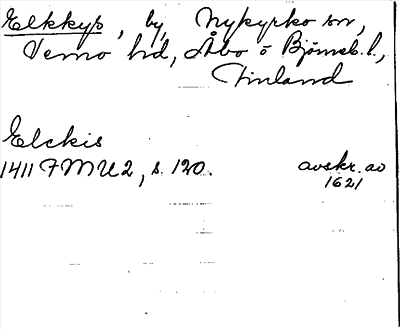 Elkkys, by, Nykyrko sn,
Vemo hd, Åbo o Bjömeb. l.,
Finland
Elckis
1411 FMU 2, s. 120. avskr. av
1621